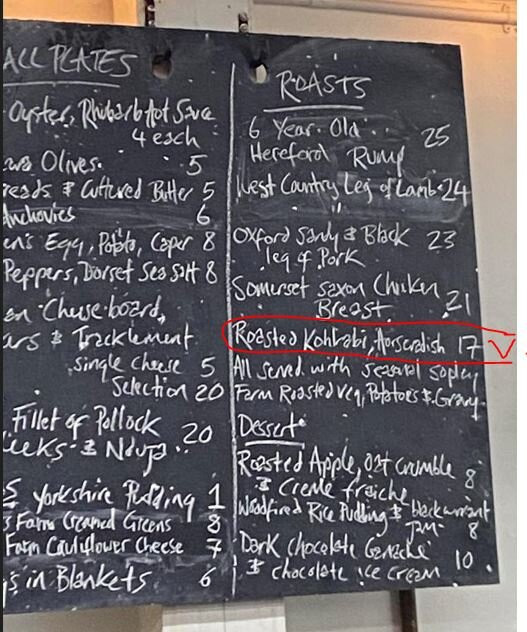 ALL PLATES
Oyster, Rhubarb Hot Sauce
4 each
Olives. 5
reads & Cultured Butter 5
Anchovies 6
en's Egg, Potato, Caper 8
Peppers, Dorset Sea Salt 8
en Cheese-board,
ers & Tracklement
single cheese 5
Selection 20
Fillet of Pollock
eeks & Nduja 20
Yorkshire Pudding 1
s Farm Creamed Greens 8
Farm Cauliflower Cheese 7
s in Blankets 6
ROASTS
6 Year Old 25
Hereford Rump
West Country Leg of Lamb 24
Oxford Sandy & Black 23
leg of Pork
Somerset Saxon Chicken 21
Breast
Roasted Kohlrabi, Horseradish 17 V
All served with seasonal
Farm Roasted Veg, Potatoes & Gravy
Dessert
Roasted Apple, Oat Crumble 8
& Creme fraiche
Woodfired Rice Pudding & blackcurrant
Jam 8
Dark Chocolate Ganache 10
& chocolate ice cream